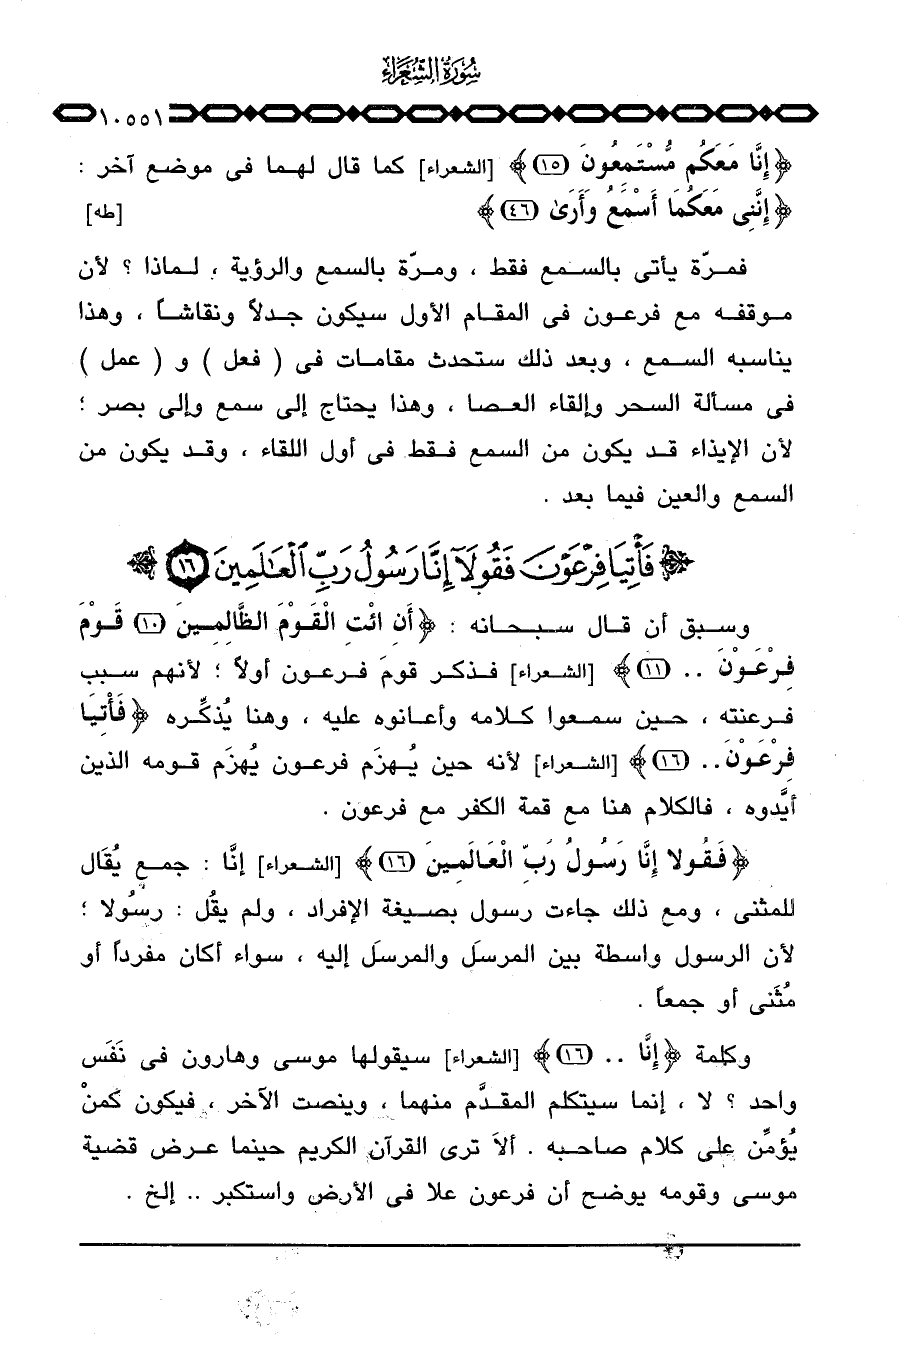 سُورَةُ الشُّعَرَاءِ
١٠٥٥١
﴿ إِنَّا مَعَكُم مُّسْتَمِعُونَ (١٥) ﴾ [الشعراء] كما قال لهما فى موضع آخر :
﴿ إِنَّنِى مَعَكُمَا أَسْمَعُ وَأَرَىٰ (٤٦) ﴾ [طه]
فمرّة يأتى بالسمع فقط ، ومرّة بالسمع والرؤية ، لماذا ؟ لأن
موقفه مع فرعون فى المقام الأول سيكون جدلاً ونقاشاً ، وهذا
يناسبه السمع ، وبعد ذلك ستحدث مقامات فى ( فعل ) و ( عمل )
فى مسألة السحر وإلقاء العصا ، وهذا يحتاج إلى سمع وإلى بصر ؛
لأن الإيذاء قد يكون من السمع فقط فى أول اللقاء ، وقد يكون من
السمع والعين فيما بعد .
﴿ فَأْتِيَا فِرْعَوْنَ فَقُولَآ إِنَّا رَسُولُ رَبِّ ٱلْعَٰلَمِينَ ١٦ ﴾
وسبق أن قال سبحانه : ﴿ أَنِ ائْتِ الْقَوْمَ الظَّالِمِينَ (١٠) قَوْمَ
فِرْعَوْنَ .. (١١) ﴾ [الشعراء] فذكر قومَ فرعون أولاً ؛ لأنهم سبب
فرعنته ، حين سمعوا كلامه وأعانوه عليه ، وهنا يُذكِّره ﴿ فَأْتِيَا
فِرْعَوْنَ.. (١٦) ﴾ [الشعراء] لأنه حين يُهزَم فرعون يُهزَم قومه الذين
أيَّدوه ، فالكلام هنا مع قمة الكفر مع فرعون .
﴿ فَقُولا إِنَّا رَسُولُ رَبِّ الْعَالَمِينَ (١٦) ﴾ [الشعراء] إنَّا : جمع يُقَال
للمثنى ، ومع ذلك جاءت رسول بصيغة الإفراد ، ولم يقُل : رسُولا ؛
لأن الرسول واسطة بين المرسل والمرسل إليه ، سواء أكان مفرداً أو
مُثَنى أو جمعاً .
وكلمة ﴿ إِنَّا .. (١٦) ﴾ [الشعراء] سيقولها موسى وهارون فى نَفَس
واحد ؟ لا ، إنما سيتكلم المقدَّم منهما ، وينصت الآخر ، فيكون كمنْ
يُؤمِّن على كلام صاحبه . ألاَ ترى القرآن الكريم حينما عرض قضية
موسى وقومه يوضح أن فرعون علا فى الأرض واستكبر .. إلخ .